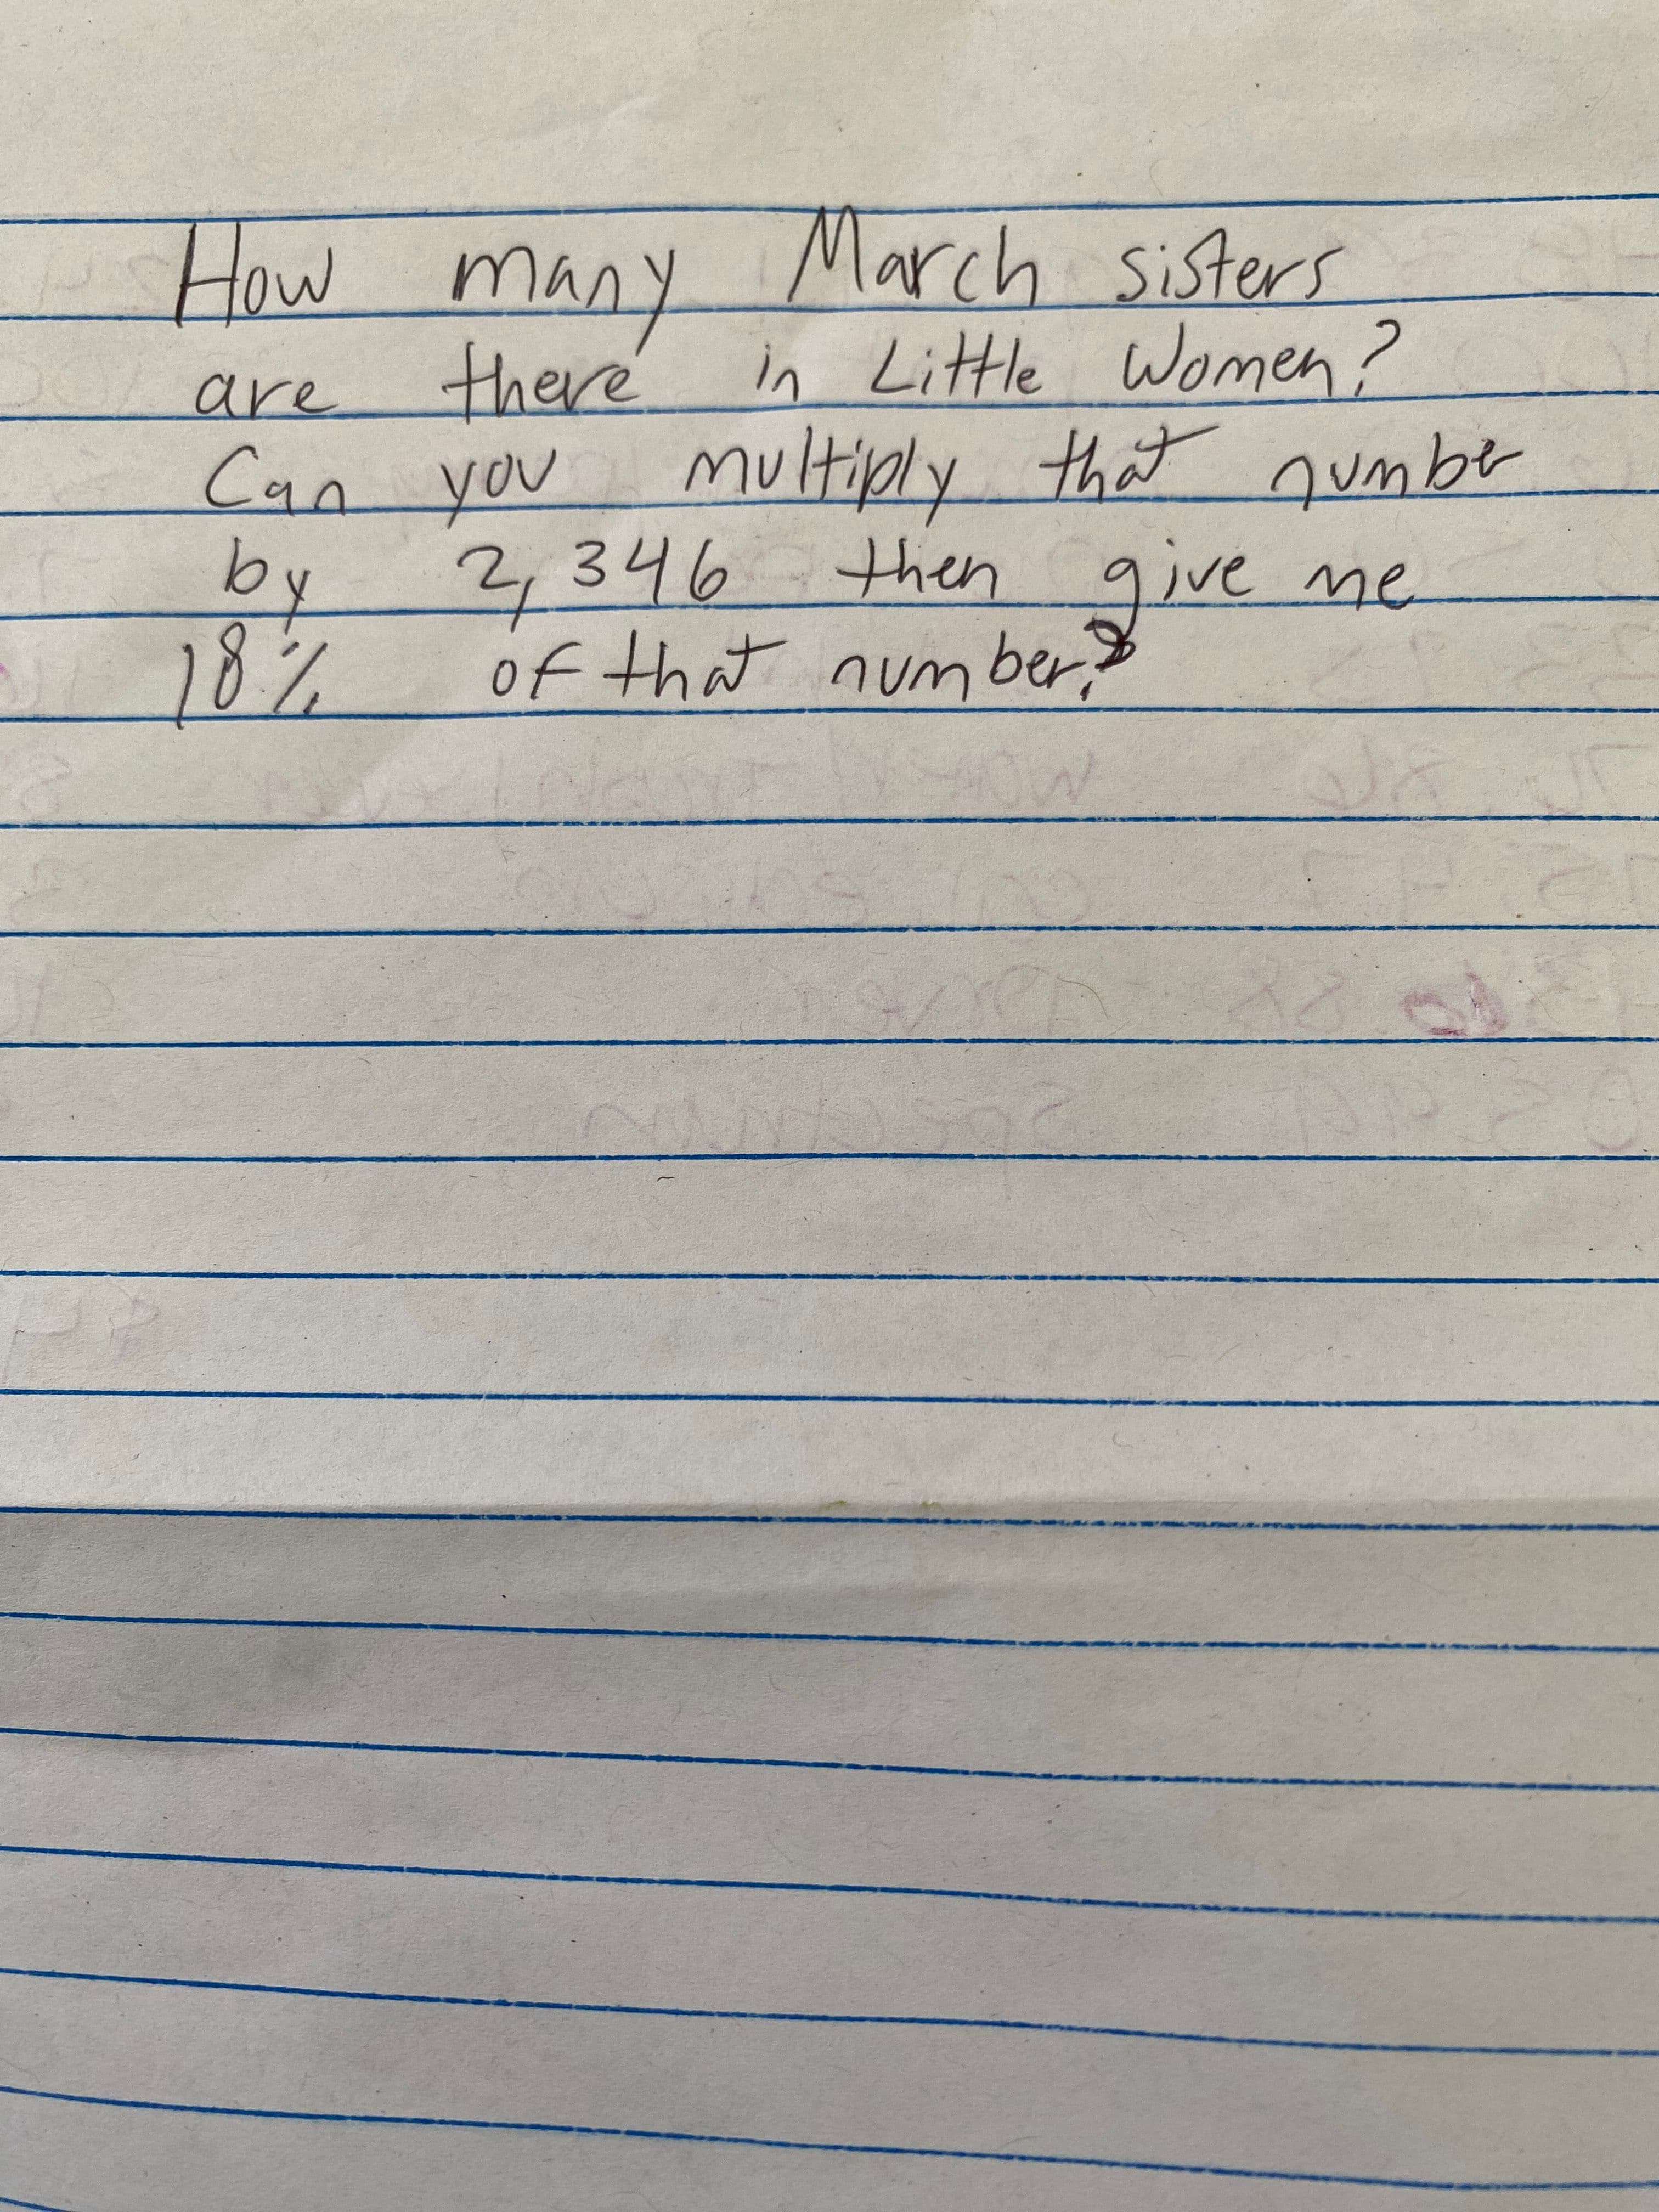 How many March sisters
are there in Little Women?
Can you multiply that number
by 2,346 then give me
18% of that number?